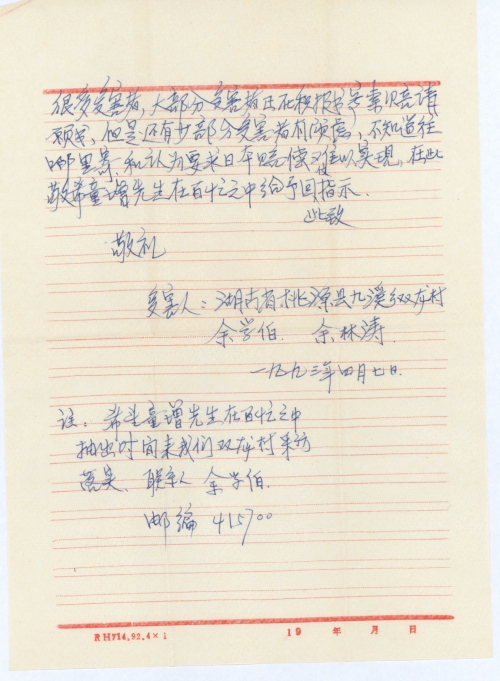 很多受害者,大部分受害者正在积报写索赔请
愿书,但是还有少部分受害者有顾虑,不知道往
哪里寄,和认为要求日本赔偿难以实现,在此
敬希童增先生在百忙之中给予回指示.
此致
敬礼
受害人:湖南省桃源县九溪乡双龙村
余学伯. 余林涛.
一九九三年四月七日.
注:希望童增先生在百忙之中
抽出时间来我们双龙村来访
落实. 联系人 余学伯.
邮编 415700
RH714.92.4×1 19 年 月 日